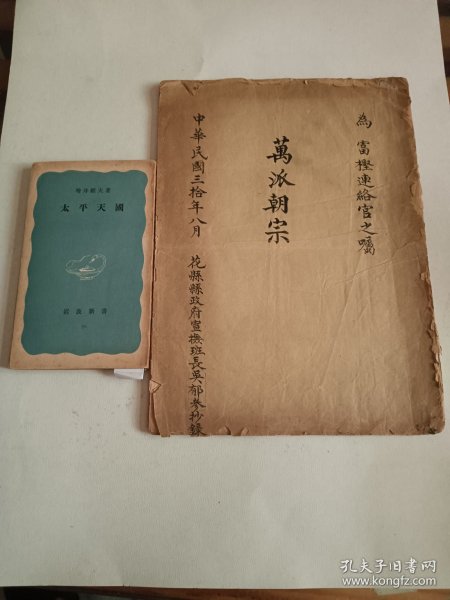 為富樫連絡官之囑
萬派朝宗
中華民國三拾年八月
花縣縣政府宣撫班長吳郁参抄錄
增井經夫著
太平天國
岩波新書
孔夫子旧书网
www.kongfz.com